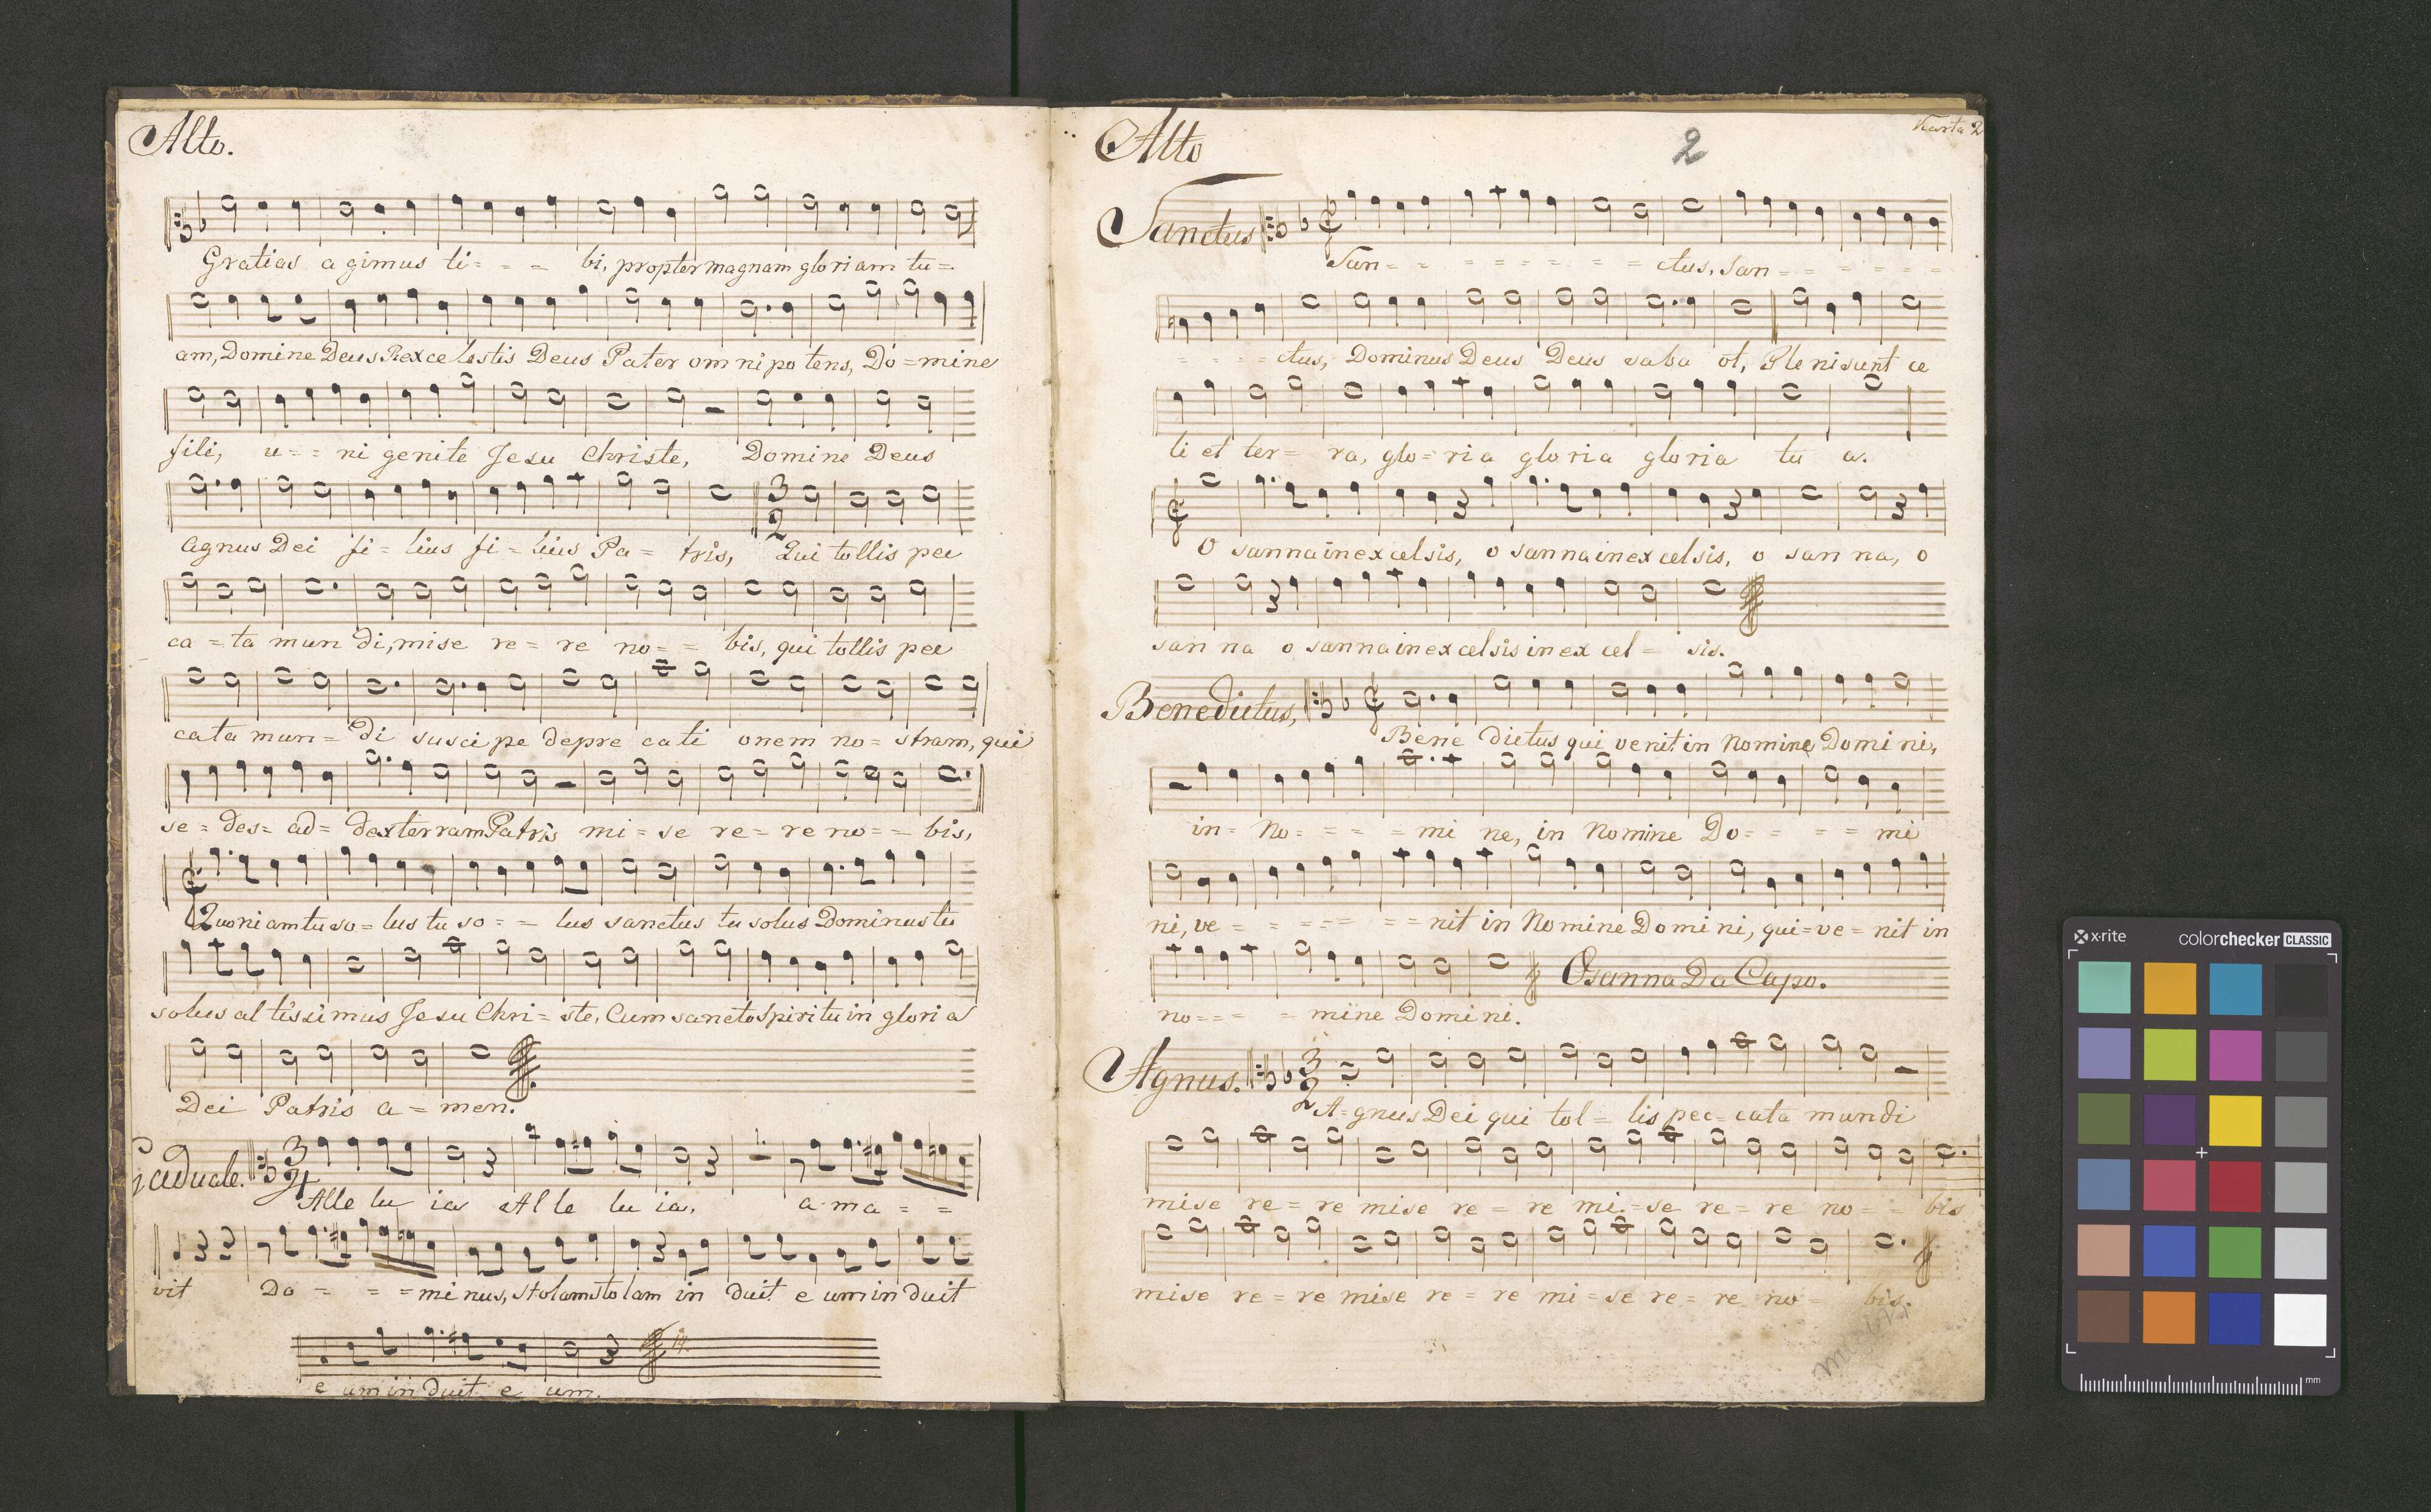 Alto.
Gratias agimus ti= = = bi, propter magnam gloriam tu=
am, Domine Deus Rex celestis Deus Pater omnipotens, Do=mine
fili, u== nigenite Jesu Christe, Domine Deus
3
2
agnus Dei fi=lius fi=lius Pa=tris, Qui tollis pec
ca=ta mundi, mise re=re no== bis, qui tollis pec
cata mun=di suscipe deprecationem no=stram, qui
se=des=ad=dexterram Patris mi=se re=re no== bis,
Quoniam tu so=lus tu so== lus sanctus tu solus Dominus tu
solus altissimus Jesu Chri=ste, Cum sancto spiritu in gloria
Dei Patris a=men.
Graduale. 3
4
Alle lu ia Alle lu ia, a ma = =
vit Do = = = minus, stolam stolam in duit eum in duit
14.
eum in duit e um.
Alto
2
Karta 2
Sanctus
San= = = = = = = = ctus, San = = = = = =
= = = = ctus, Dominus Deus Deus saba ot, Pleni sunt ce
li et ter= ra, glo=ria gloria gloria tu a.
O sanna in excelsis, o sanna in excelsis, o san na, o
san na o sanna in excelsis in ex cel= sis.
Benedictus,
Bene dictus qui venit in Nomine Domini,
in= No= = = = mi ne, in Nomine Do= = = = mi
ni, ve= = = = = = = nit in Nomine Domini, qui=ve=nit in
Osanna Da Capo.
no=== = mine Domini.
Agnus. 3
2
A=gnus Dei qui tol=lis pec=cata mundi
mise re=re mise re=re mi=se re=re no== bis
mise re=re mise re=re mi=se re=re no= bis.
x·rite colorchecker CLASSIC
mm